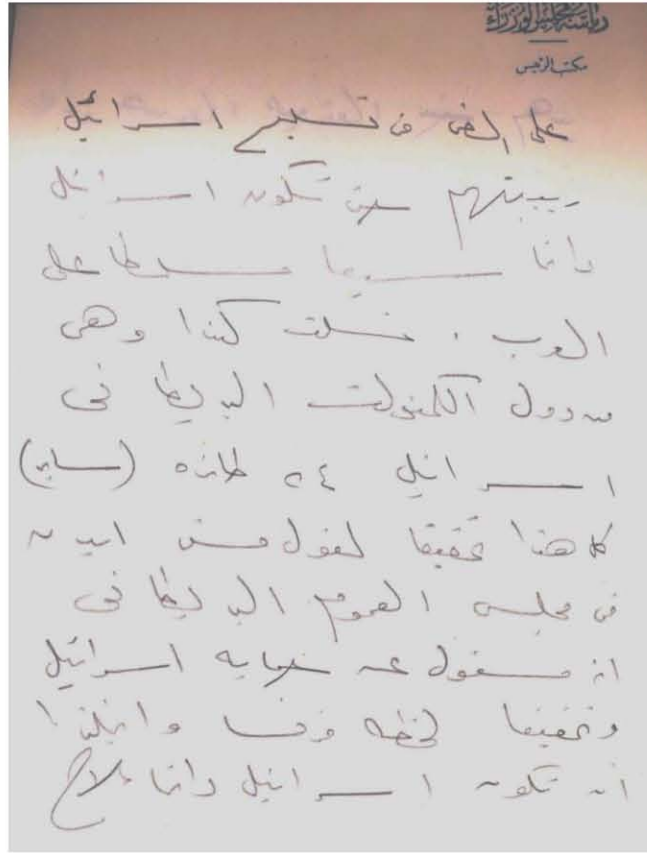 رياسة مجلس الوزراء
مكتب الرئيس
على المضى فى تسليح اسرائيل
ربيبتهم حتى تكون اسرائيل
دائما سيفا مسلطا على
العرب. فسلمت كندا وهى
من دول الكمنولث البريطانى
اسرائيل ٢٤ طائره (سابر)
كل هذا تحقيقا لقول مستر ايدن
فى مجلس العموم البريطانى
انه مسئول عن حمايه اسرائيل
وتحقيقا لخطه فرنسا وانجلترا
ان تكون اسرائيل دائما